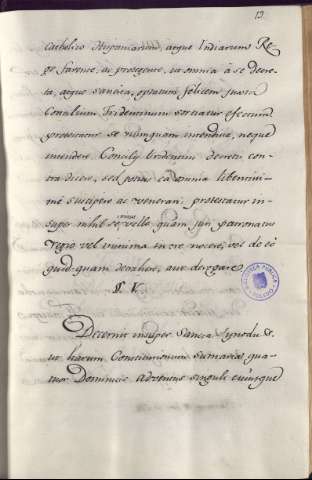 13.
Catholico Hispaniarum, atque Indiarum Re-
ge favente, ac protegente, ut omnia à se decre-
ta, atque sancita, optatum felicem juxta
Concilium Tridentinum sortiatur efectum
protestatur se numquam intendise, neque
intendere Concilij tridentini decretis con-
tradicere, sed potius ea omnia libentisi-
mè suscipere ac venerari: protestatur in-
super nihil se minus velle quam juri patronatus
regio vel minima in re nocere, vel de eo
quidquam detrahere, aut derogare.
§. V.
Decernit insuper Sancta Synodus
ut harum Constitutionum sumaria qua-
tuor Dominicis adventus singulis cuiusque